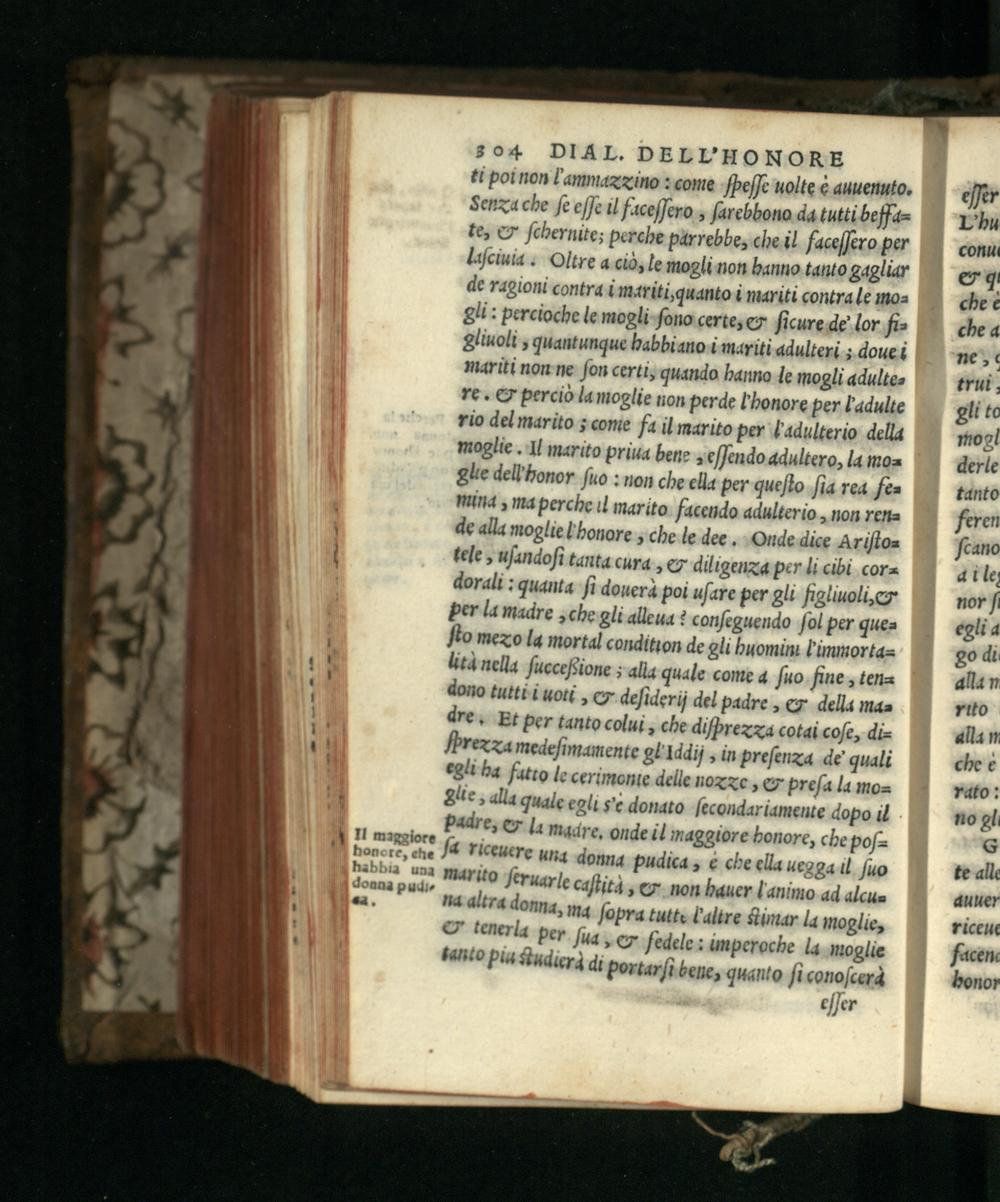 304 DIAL. DELL'HONORE
ti poi non l'ammazzino : come ſpeſſe uolte è auuenuto.
Senza che ſe eſſe il faceſſero , ſarebbono da tutti beffa=
te, & ſchernite; perche parrebbe, che il faceſſero per
laſciuia . Oltre a ciò, le mogli non hanno tanto gagliar
de ragioni contra i mariti,quanto i mariti contra le mo=
gli : percioche le mogli ſono certe, & ſicure de' lor fi=
gliuoli , quantunque habbiano i mariti adulteri ; doue i
mariti non ne ſon certi, quando hanno le mogli adulte=
re . & perciò la moglie non perde l'honore per l'adulte
rio del marito ; come fa il marito per l'adulterio della
moglie . Il marito priua bene , eſſendo adultero, la mo=
glie dell'honor ſuo : non che ella per queſto ſia rea fe=
mina , ma perche il marito facendo adulterio , non ren=
de alla moglie l'honore , che le dee . Onde dice Ariſto=
tele , uſandoſi tanta cura , & diligenza per li cibi cor=
dorali : quanta ſi douerà poi uſare per gli figliuoli,&
per la madre , che gli alleua ? conſeguendo ſol per que=
ſto mezo la mortal condition de gli huomini l'immorta=
lità nella ſucceßione ; alla quale come a ſuo fine , ten=
dono tutti i uoti , & deſiderij del padre , & della ma=
dre . Et per tanto colui , che diſprezza cotai coſe, di=
ſprezza medeſimamente gl'Iddij , in preſenza de' quali
egli ha fatto le cerimonie delle nozze , & preſa la mo=
glie , alla quale egli s'è donato ſecondariamente dopo il
padre, & la madre. onde il maggiore honore, che poſ=
ſa riceuere una donna pudica , è che ella uegga il ſuo
marito ſeruarle caſtità , & non hauer l'animo ad alcu=
na altra donna, ma ſopra tutte l'altre ſtimar la moglie,
& tenerla per ſua , & fedele : imperoche la moglie
tanto piu ſtudierà di portarſi bene, quanto ſi conoſcerà
eſſer
Il maggiore
honore, che
habbia una
donna pudi=
ca.
eſſer
L'hu
conue
& qu
che è
che a
ne , q
trui ,
gli to
mogl
derle
tanto
feren
ſcano
a i leg
nor ſu
egli a
go di
alla m
rito
alla m
che è
rato :
no gli
G
te alle
auuer
riceue
facend
honor